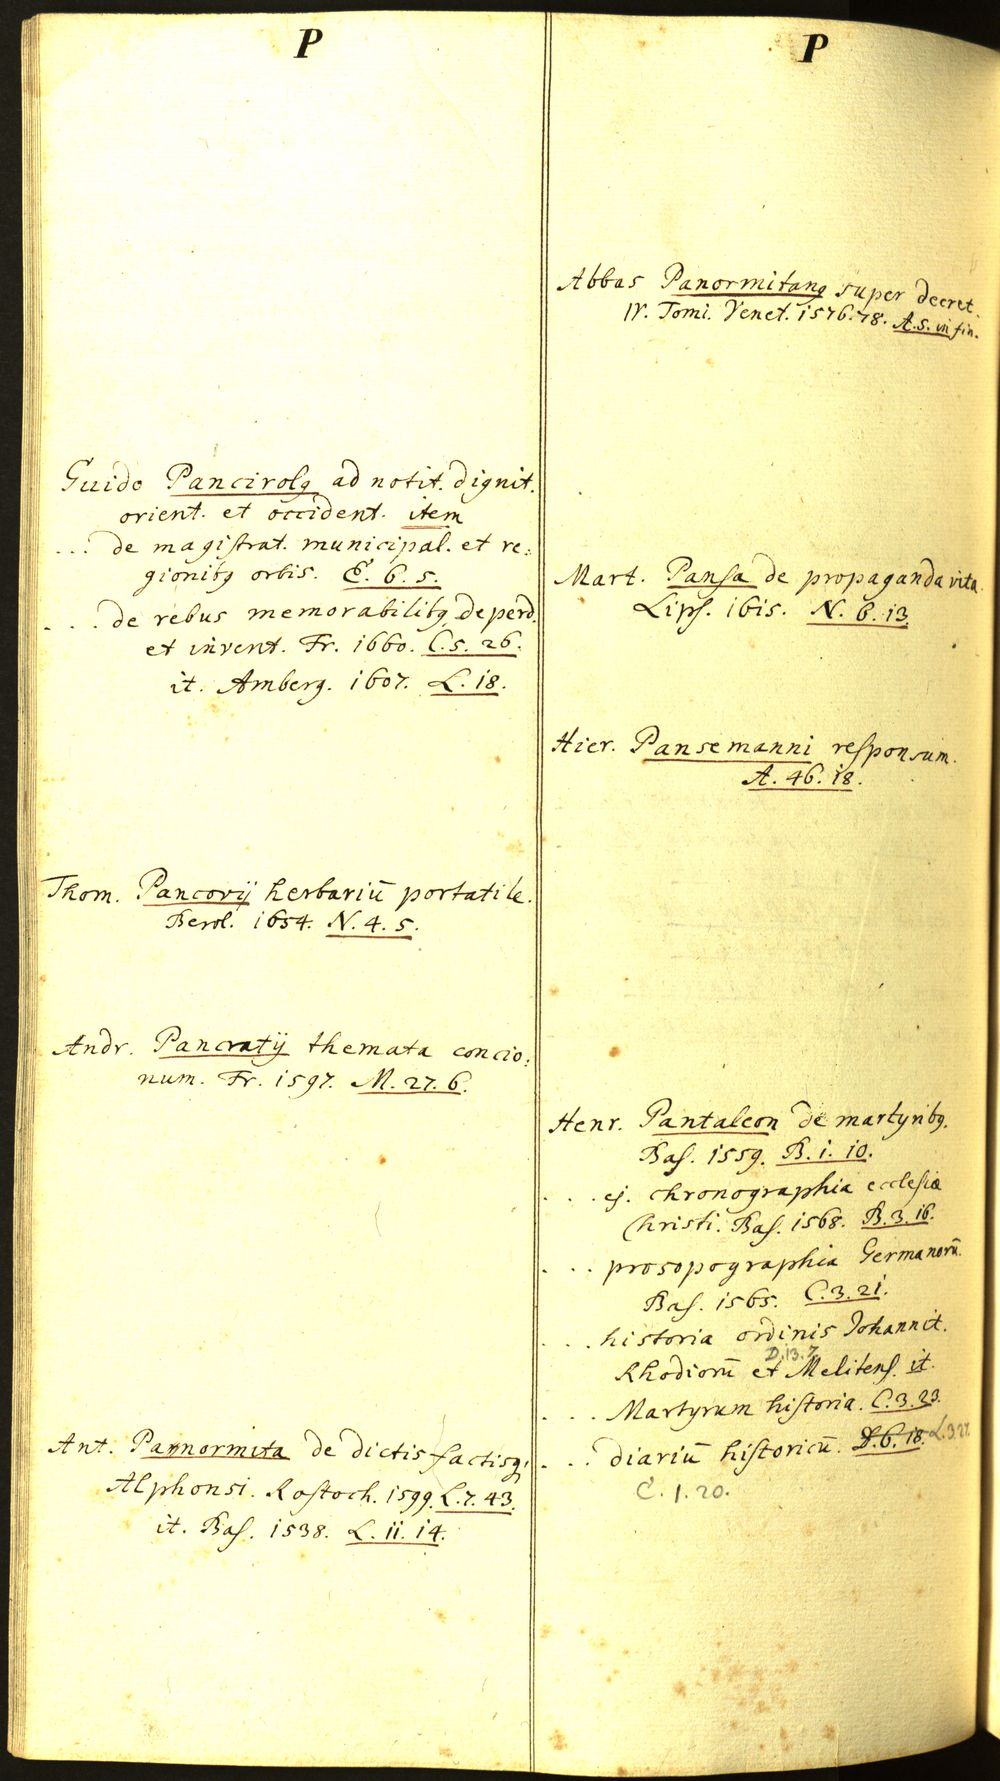 P
Guido Pancirolꝰ ad notit. dignit.
orient. et occident. item
... de magistrat. municipal. et re:
gionibꝰ orbis. E. 6. 5.
... de rebus memorabilibꝰ deperd.
et invent. Fr. 1660. C. 5. 26.
it. Amberg. 1607. L. 18.
Thom. Pancovij herbariū portatile.
Berol. 1654. N. 4. 5.
Andr. Pancratij themata concio:
num. Fr. 1597. M. 27. 6.
Ant. Pannormita de dictis factisqꝫ
Alphonsi. Rostoch. 1599. L. 7. 43.
it. Bas. 1538. L. 11. 14.
P
Abbas Panormitanꝰ super decret.
IV. Tomi. Venet. 1576. 78. A. 5. in fin.
Mart. Pansa de propaganda vita.
Lips. 1615. N. 6. 13.
Hier. Pansemanni responsum.
A. 46. 18.
Henr. Pantaleon de martyribꝰ.
Bas. 1559. B. 1. 10.
... ej. chronographia ecclesiæ
Christi. Bas. 1568. B. 3. 16.
... prosopographia Germanorū.
Bas. 1565. C. 3. 21.
... historia ordinis Johannit.
D. 13. 7
Rhodiorū et Melitens. it.
... Martyrum historia. C. 3. 23.
... diariū historicū. D. 6. 18. L. 3. 27.
C. 1. 20.